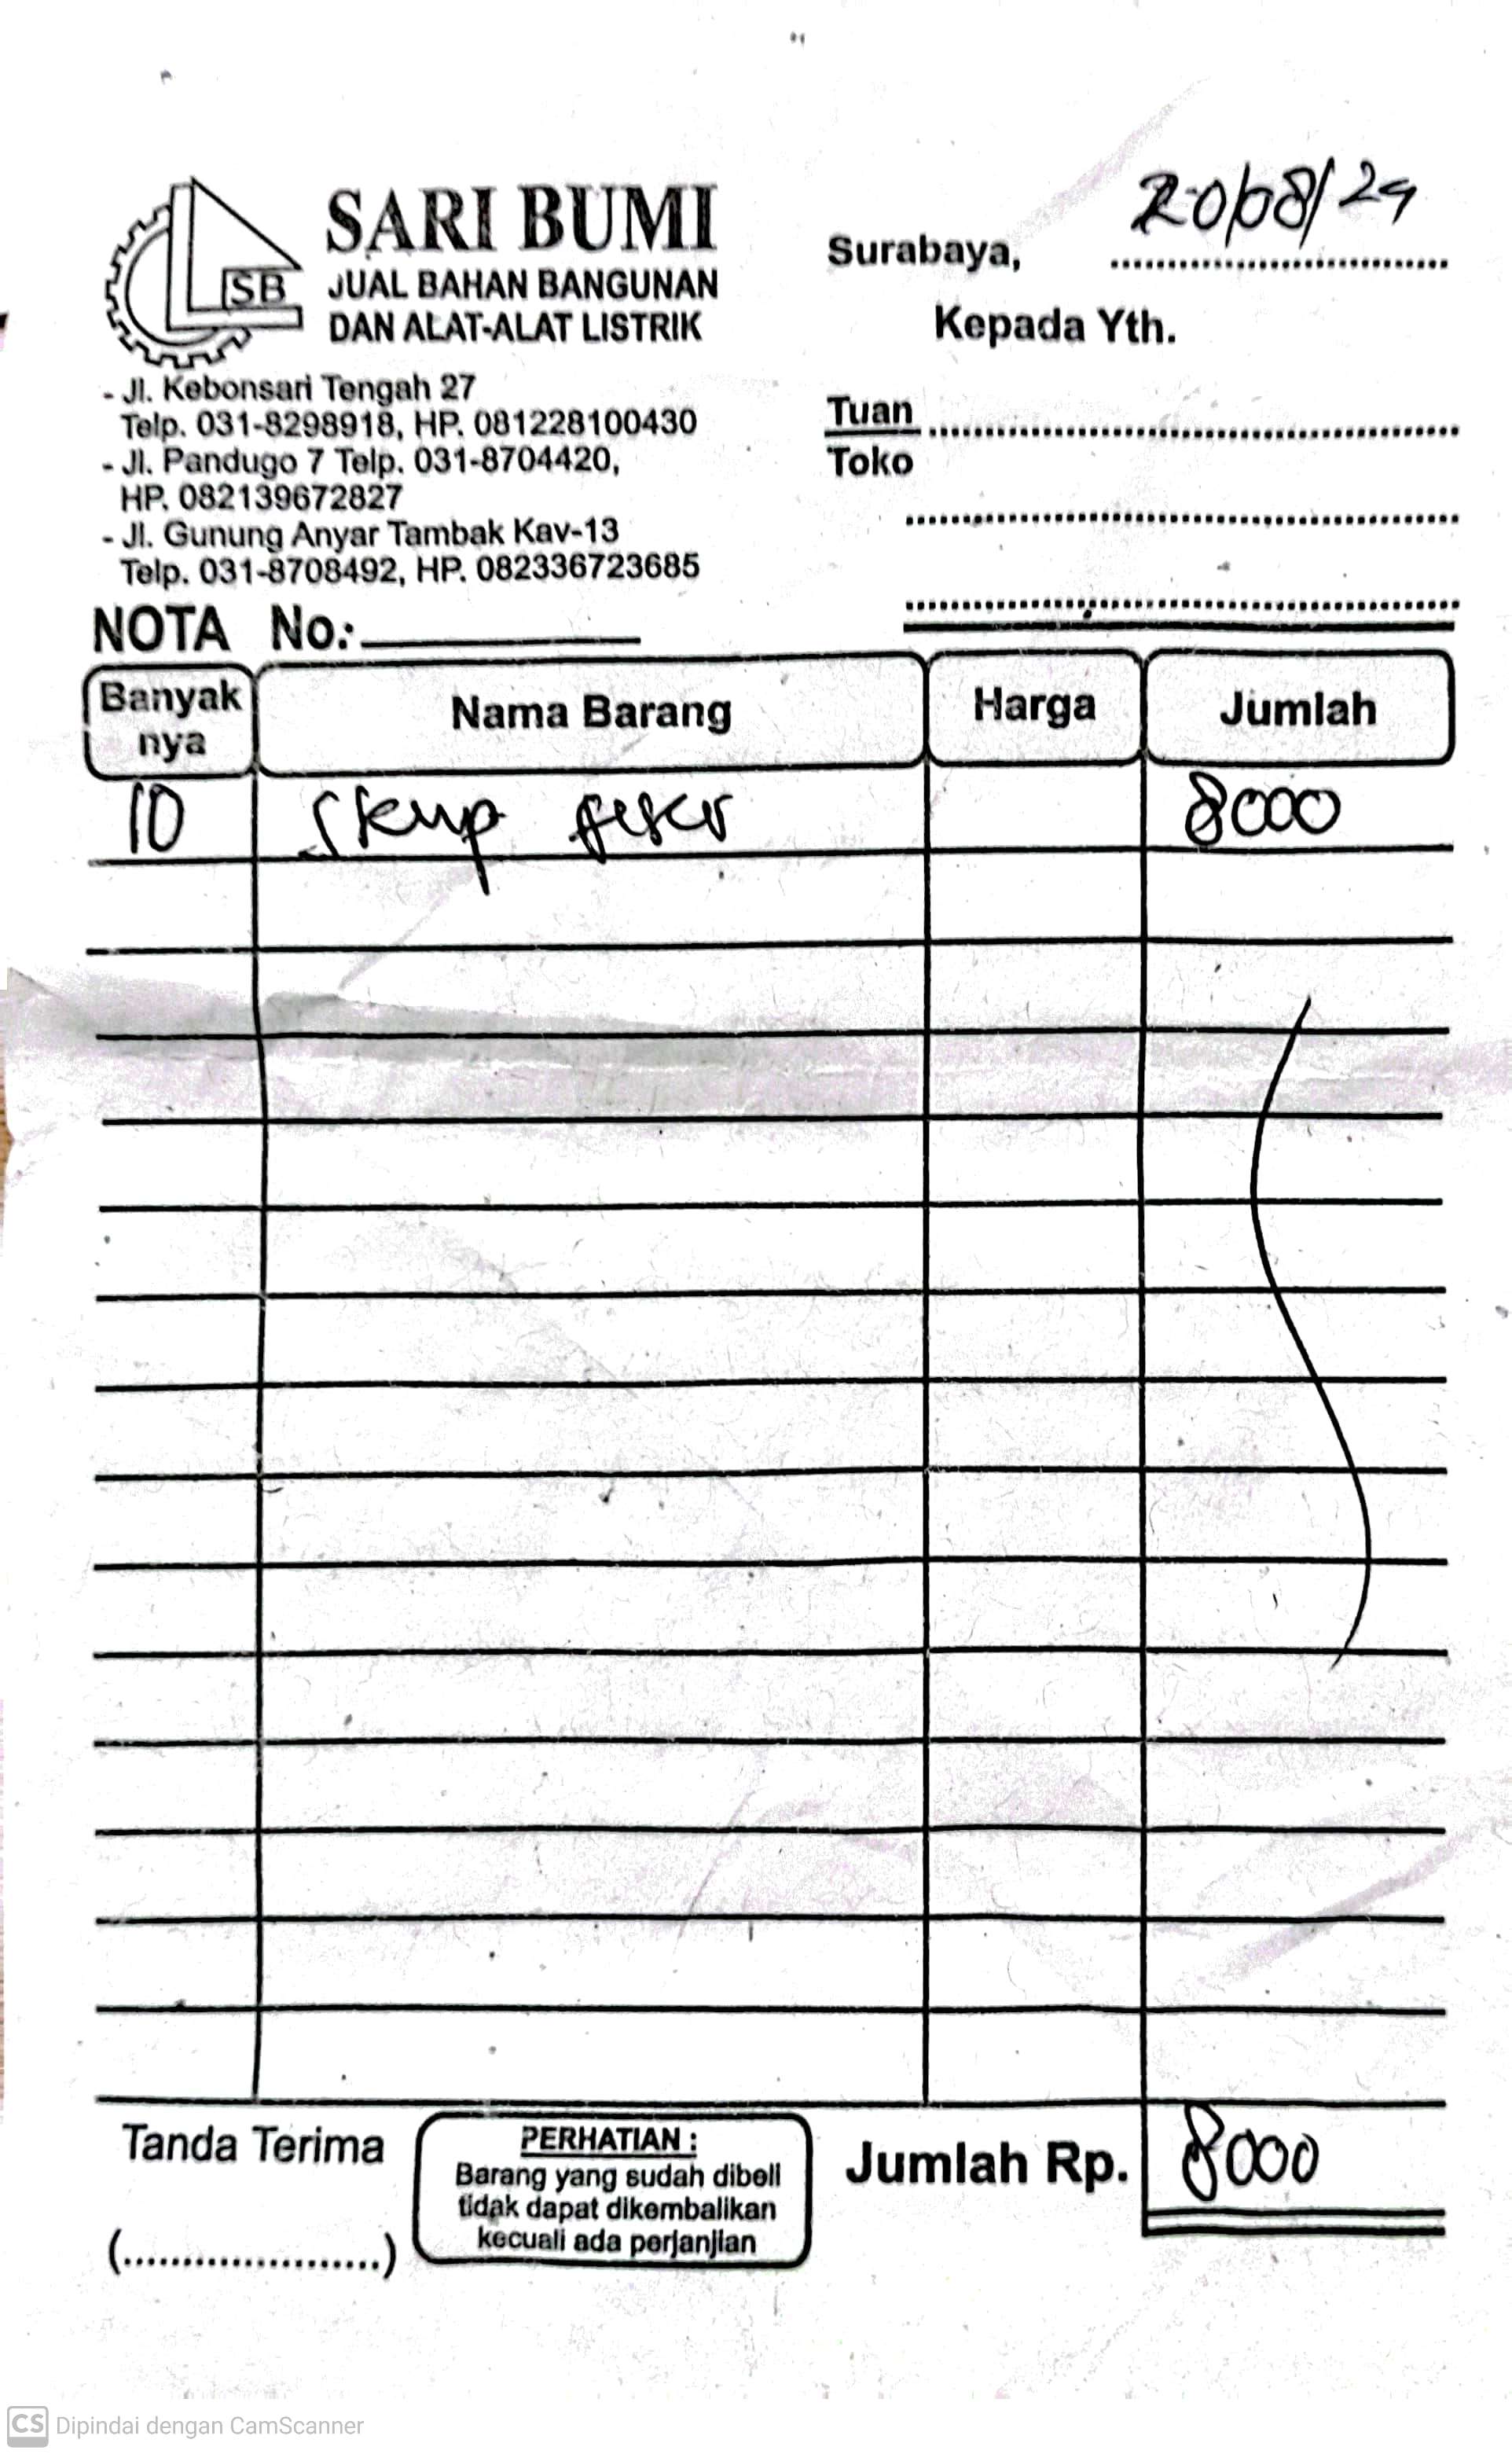 SARI BUMI
JUAL BAHAN BANGUNAN
DAN ALAT-ALAT LISTRIK
SB
- Jl. Kebonsari Tengah 27
Telp. 031-8298918, HP. 081228100430
- Jl. Pandugo 7 Telp. 031-8704420,
HP. 082139672827
- Jl. Gunung Anyar Tambak Kav-13
Telp. 031-8708492, HP. 082336723685
Surabaya, 20/08/24
Kepada Yth.
Tuan
Toko
NOTA No.:
Banyak nya Nama Barang Harga Jumlah
10 Skrup 8000
Tanda Terima
(.....................)
PERHATIAN :
Barang yang sudah dibeli
tidak dapat dikembalikan
kecuali ada perjanjian
Jumlah Rp. 8000
CS Dipindai dengan CamScanner